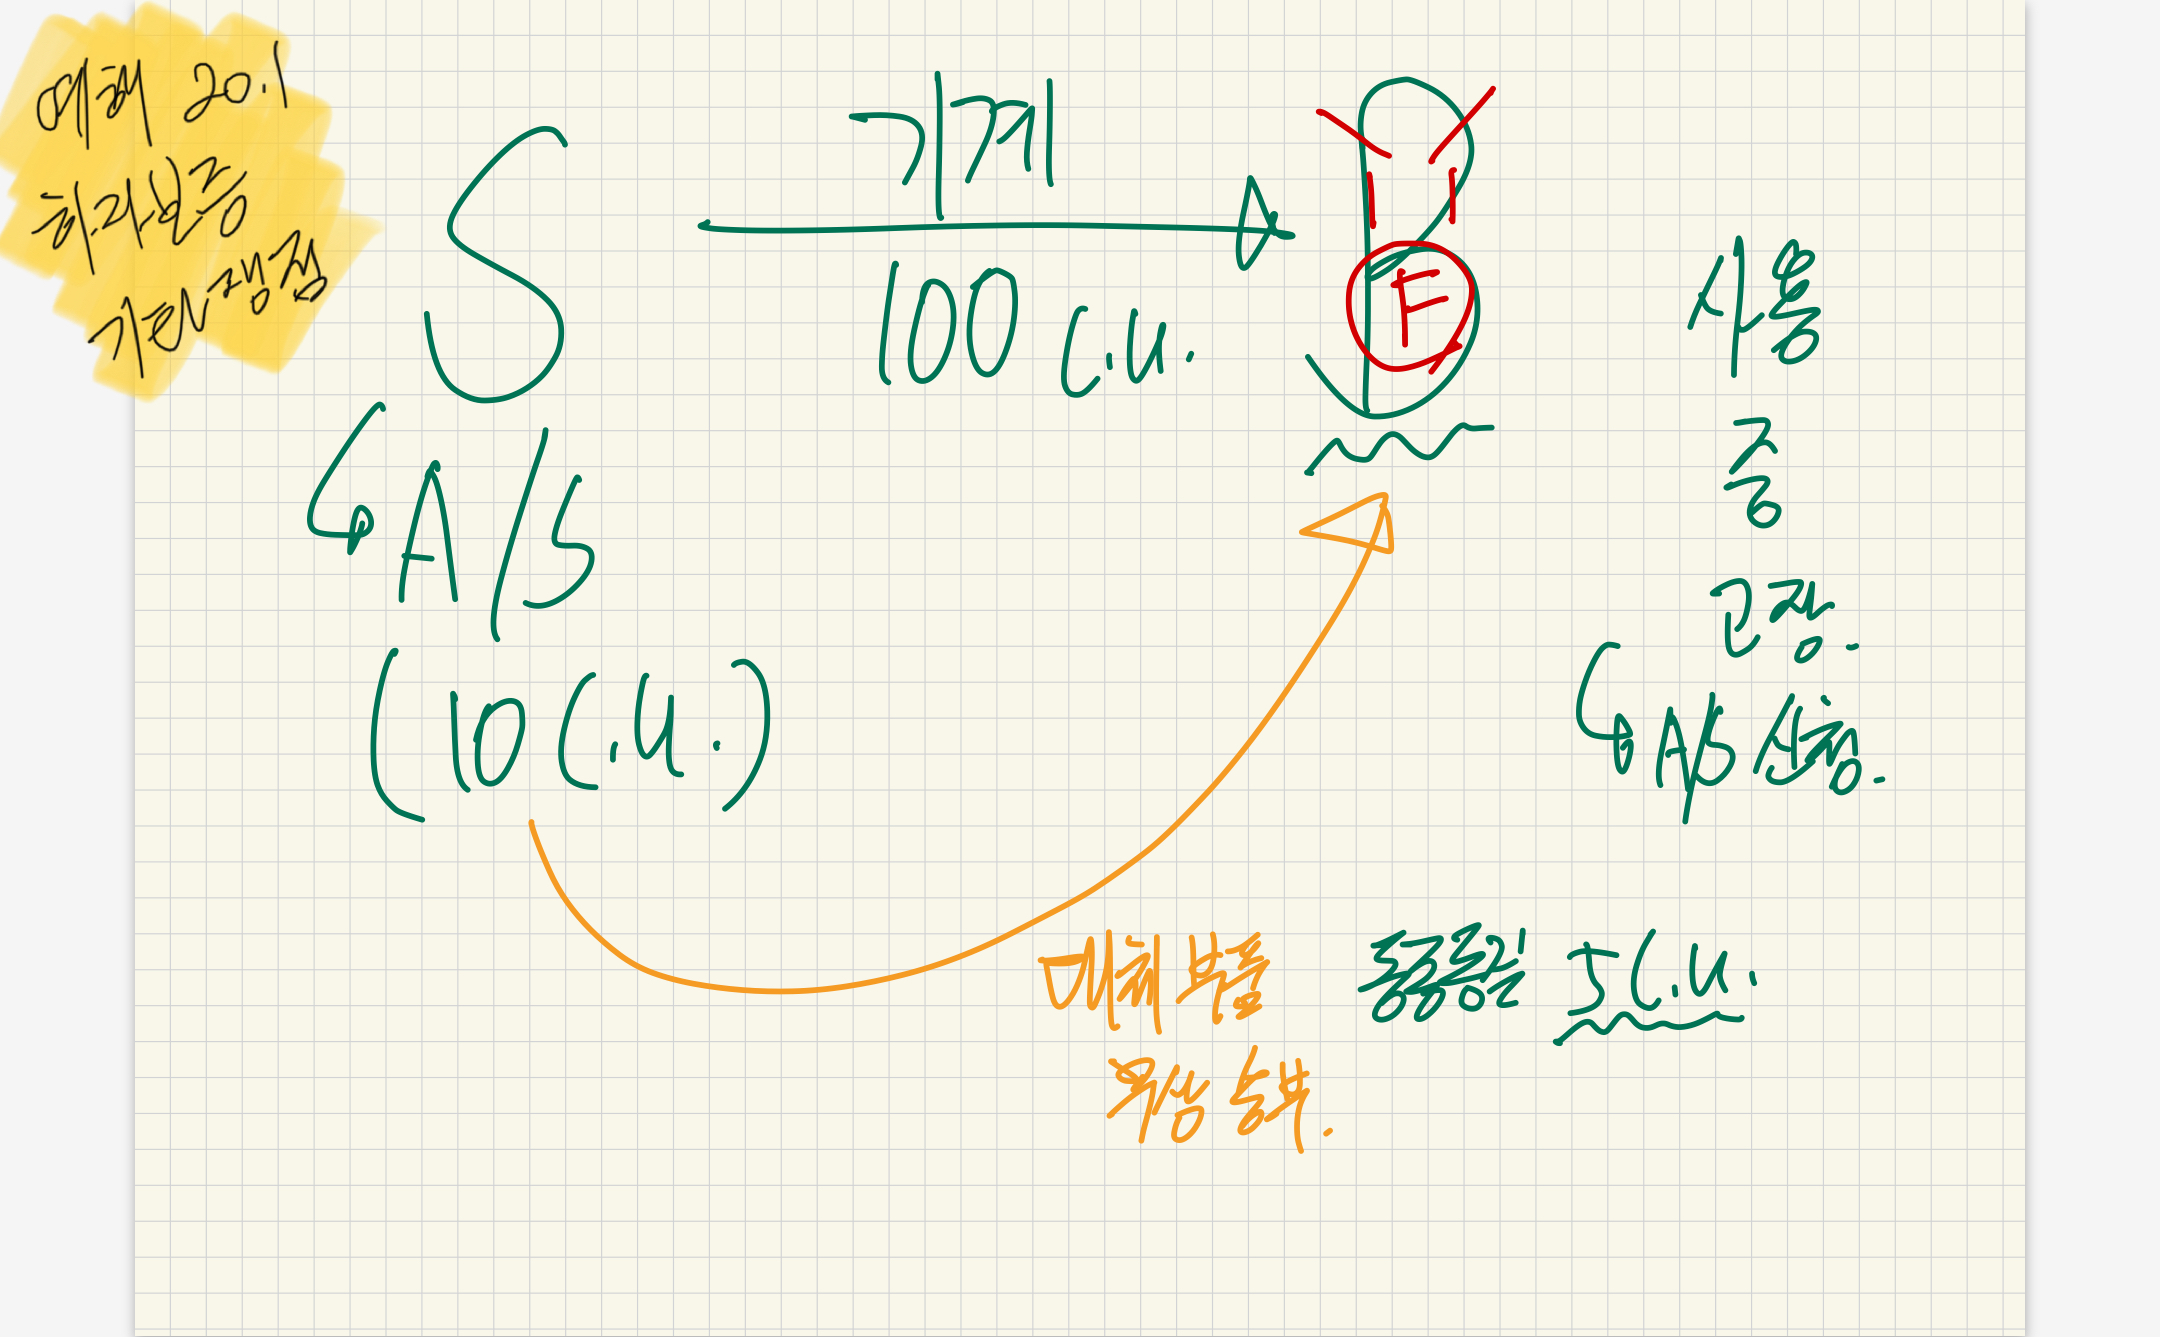 예해 20.1
하자보증
기한 쟁점
S
기계
100 C.U.
B
F
A/S
(10 C.U.)
사용
중
고장.
A/S 신청.
대체부품
무상 송부.
5 C.U.